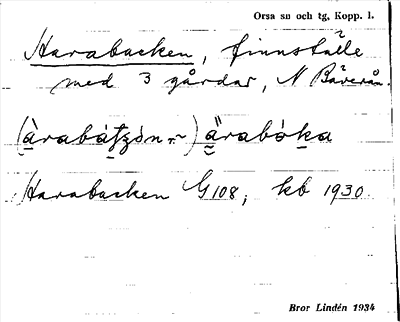 Orsa sn och tg, Kopp. l.
Harabacken, finnställe
med 3 gårdar, N Bäverån.
Harabacken G 108, kb 1930.
Bror Lindén 1934